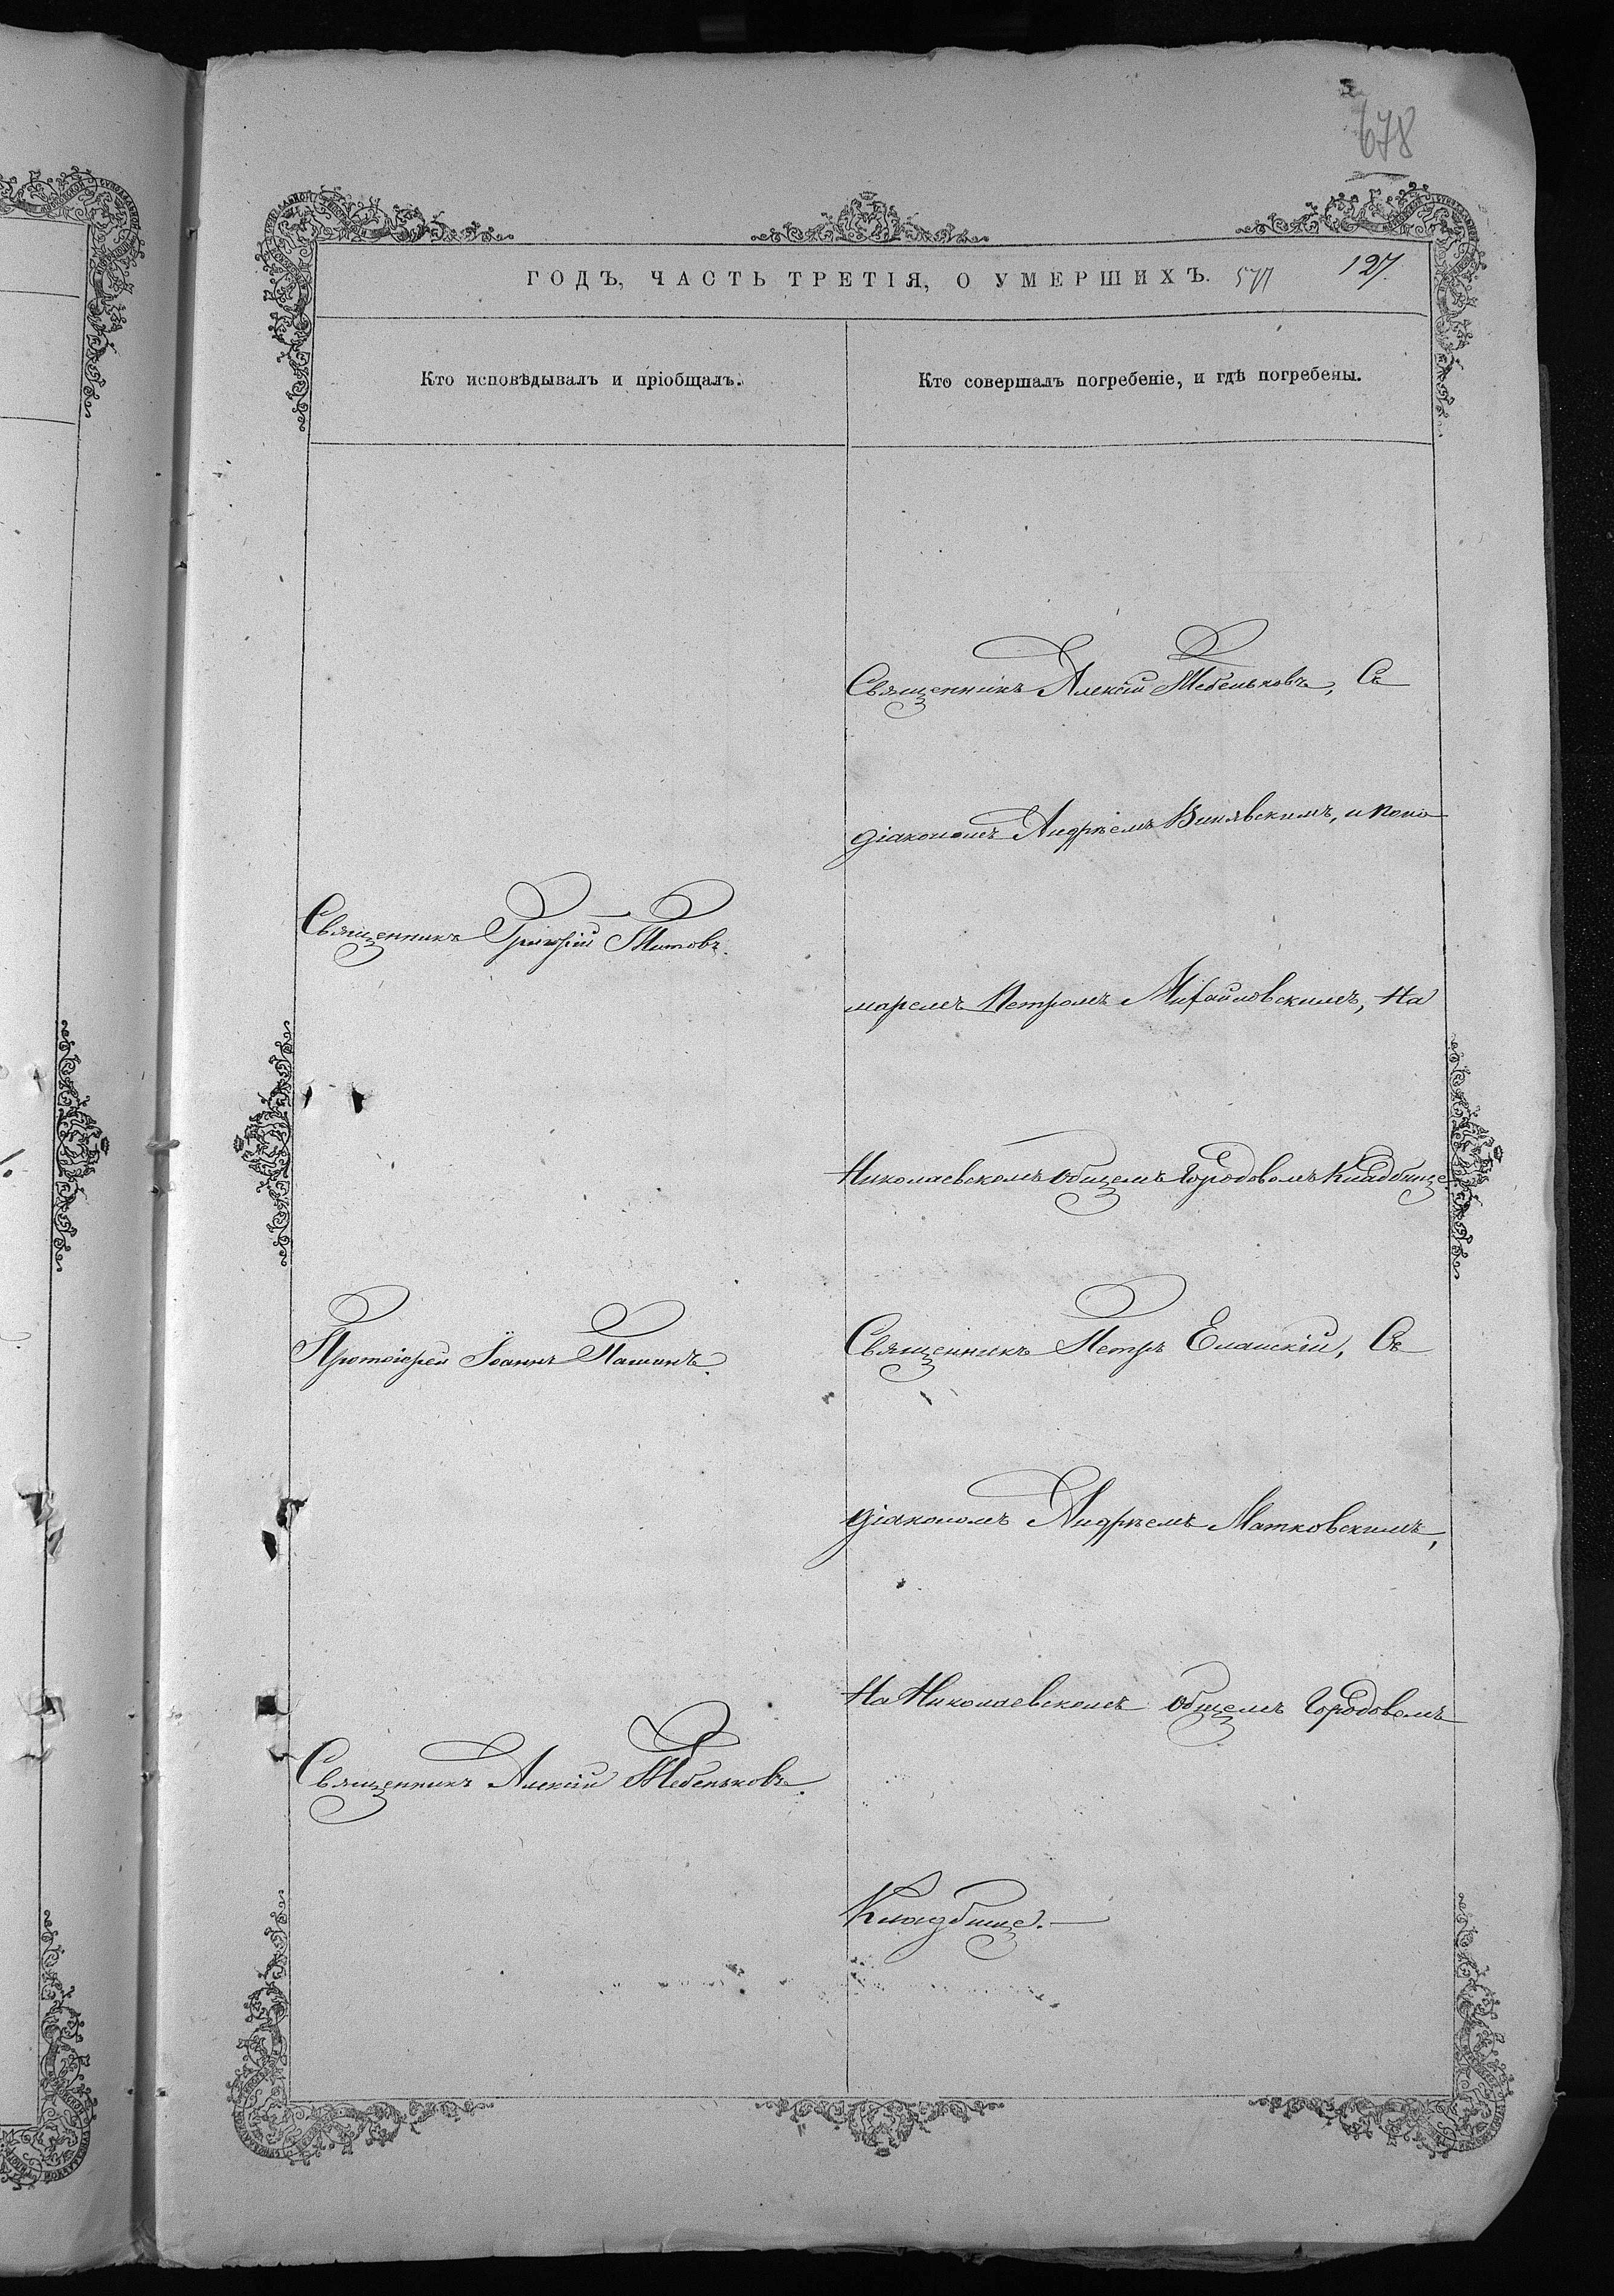 678
ГОДЪ, ЧАСТЬ ТРЕТІЯ, О УМЕРШИХЪ. 127
Кто исповѣдывалъ и пріобщалъ.
Кто совершалъ погребеніе, и гдѣ погребены.
Священникъ Григорій Титовъ.
Протоіерей Іоаннъ Пашинъ.
Священникъ Алексій Тебеньковъ.
Священникъ Алексій Тебеньковъ, Съ
діакономъ Андреемъ Винявскимъ, и поно
маремъ Петромъ Михайловскимъ, На
Николаевскомъ общемъ Городовомъ Кладбище.
Священникъ Петръ Еланскій, Съ
діакономъ Андреемъ Матковскимъ,
На Николаевскомъ общемъ Городовомъ
Кладбище.